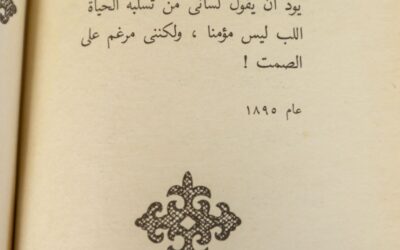 يود ان يقول لسانى من تسلبه الحياة
اللب ليس مؤمنا ، ولكننى مرغم على
الصمت !
عام ١٨٩٥